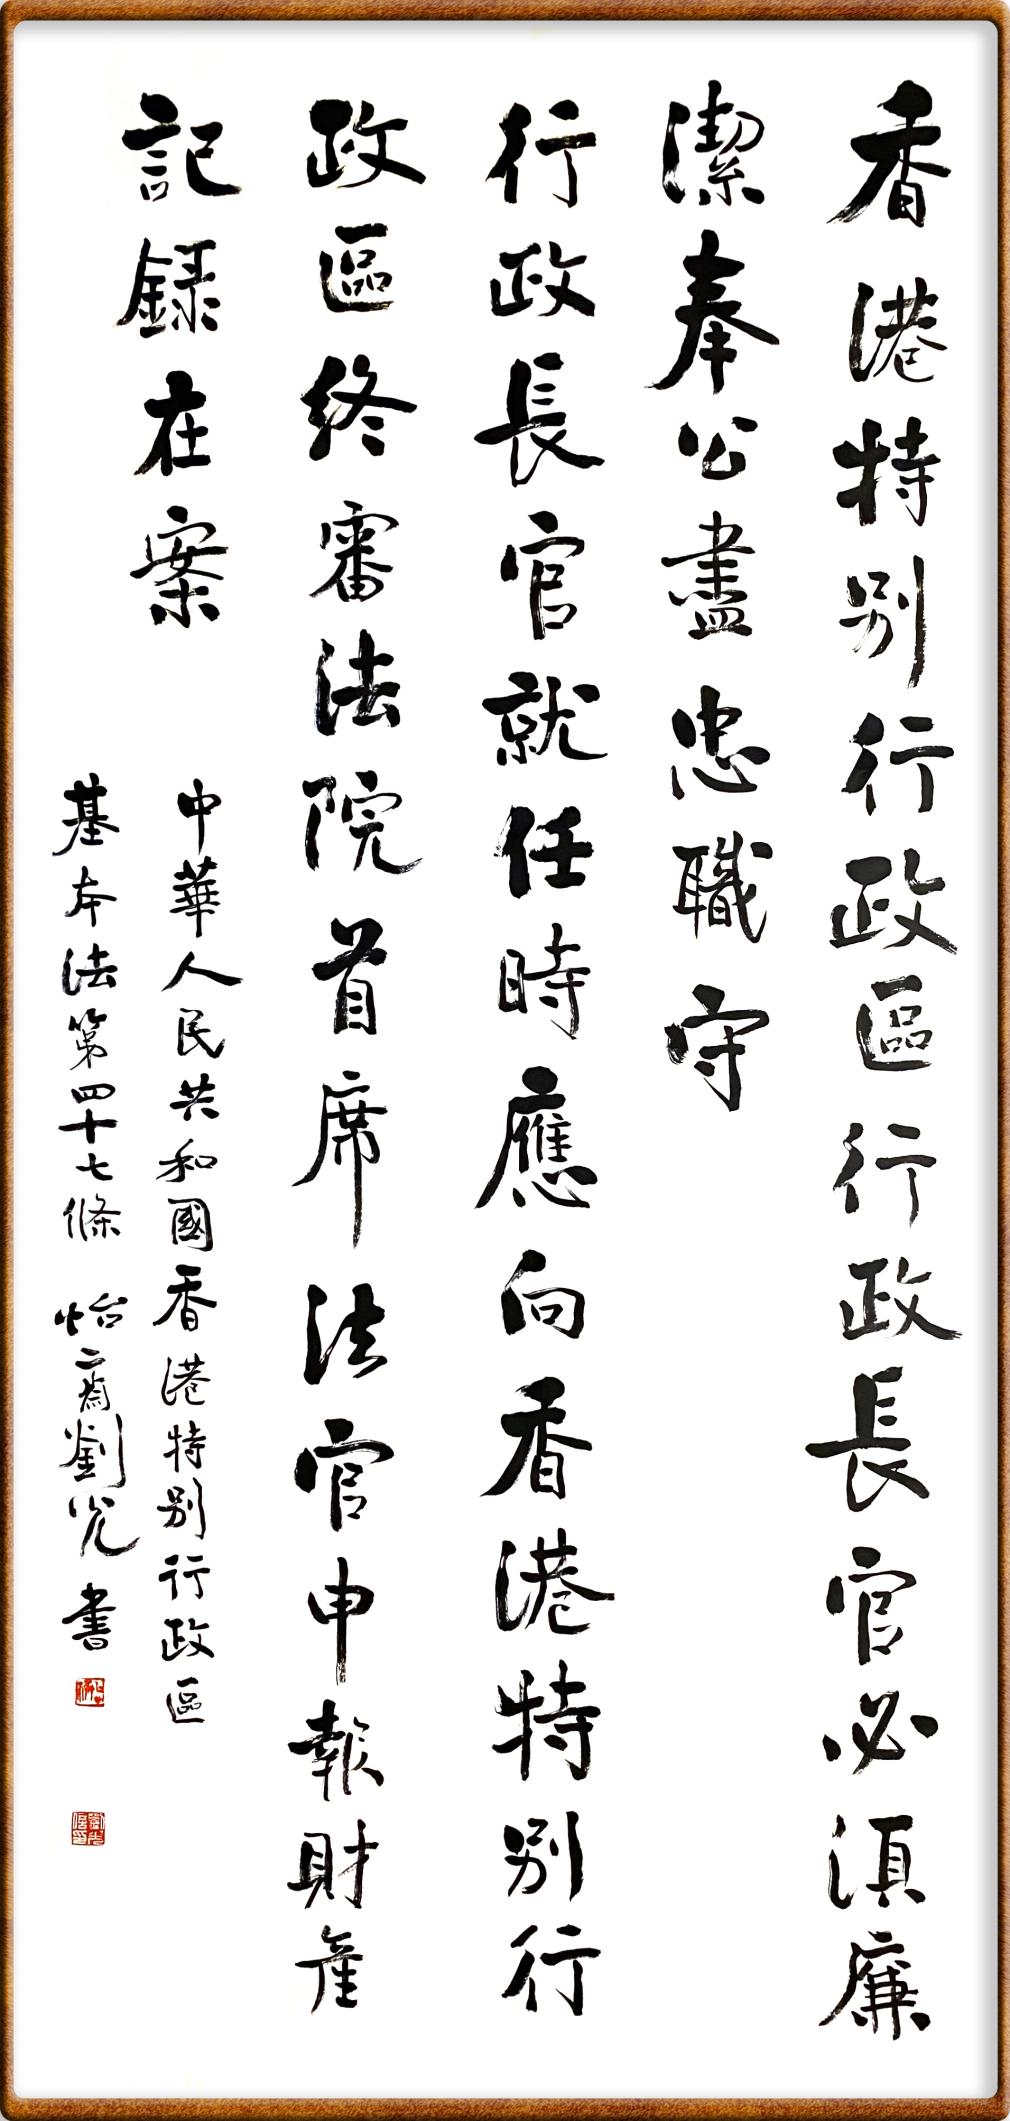 香港特別行政區行政長官必須廉
潔奉公盡忠職守
行政長官就任時應向香港特別行
政區終審法院首席法官申報財產
記錄在案
中華人民共和國香港特別行政區
基本法第四十七條 怡齋劉光書